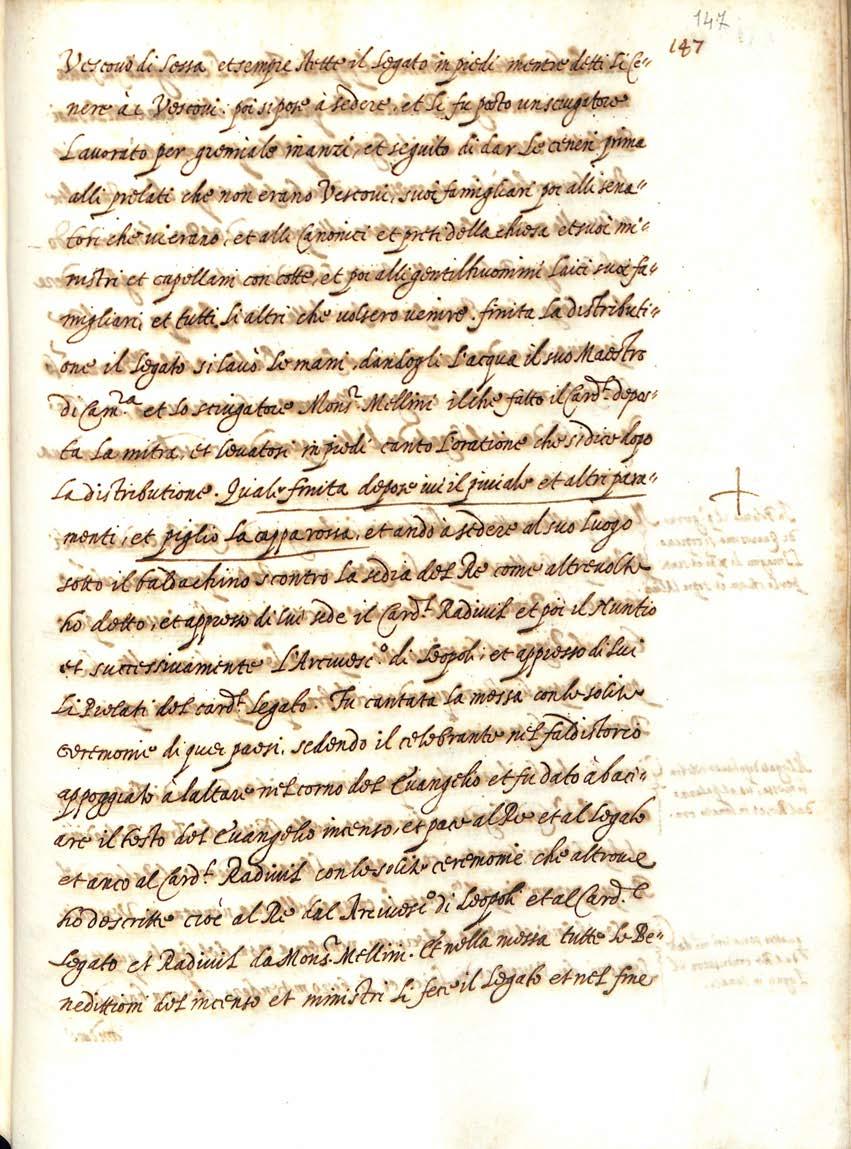 147
187
Vescovo di Sessa et sempre stette il Legato in piedi mentre dette li Ce=
nere à i Vescovi: poi si pose à sedere, et li fu posto un sciugatore
Lavorato per gremiale inanzi, et seguitò di dar Le ceneri prima
alli prelati che non erano Vescovi, suoi famigliari poi alli sena=
tori che vi erano, et alli Canonici et preti della chiesa et suoi mi=
nistri et capellani con cotte, et poi alli gentilhuomini Laici suoi fa=
migliari, et tutti li altri che volsero venire. finita La distributi=
one il Legato si lavò Le mani, dandogli L'acqua il suo Maestro
di Cam.ra et Lo sciugatore Mons.r Mellini il che fatto il Card.l depos=
ta La mitra, et Levatosi in piedi cantò L'oratione che si dice dopo
La distributione. Quale finita depose ivi il piviale et altri para=
menti, et pigliò La cappa rossa, et andò à sedere al suo Luogo
sotto il baldachino scontro La sedia del Re come altre volte
ho detto, et appresso di lui sede il Card.l Radivil et poi il Nuntio
et successivamente L'Arcivesc.o di Leopoli, et appresso di Lui
Li Prelati del card.l Legato. Fu cantata La messa con le solite
ceremonie di quei paesi, sedendo il celebrante nel faldistorio
appoggiato à laltare nel corno del Evangelio et fu dato à baci=
are il testo del Evangelio incenso, et pace al Re et al Legato
et anco al Card.l Radivil con le solite ceremonie che altrove
ho descritte cioè al Re dal Arcivesc.o di Leopoli et al Card.l
Legato et Radivil da Mons.r Mellini. Et nella messa tutte le Be=
nedittioni del incenso et ministri Li fece il Legato et nel fine